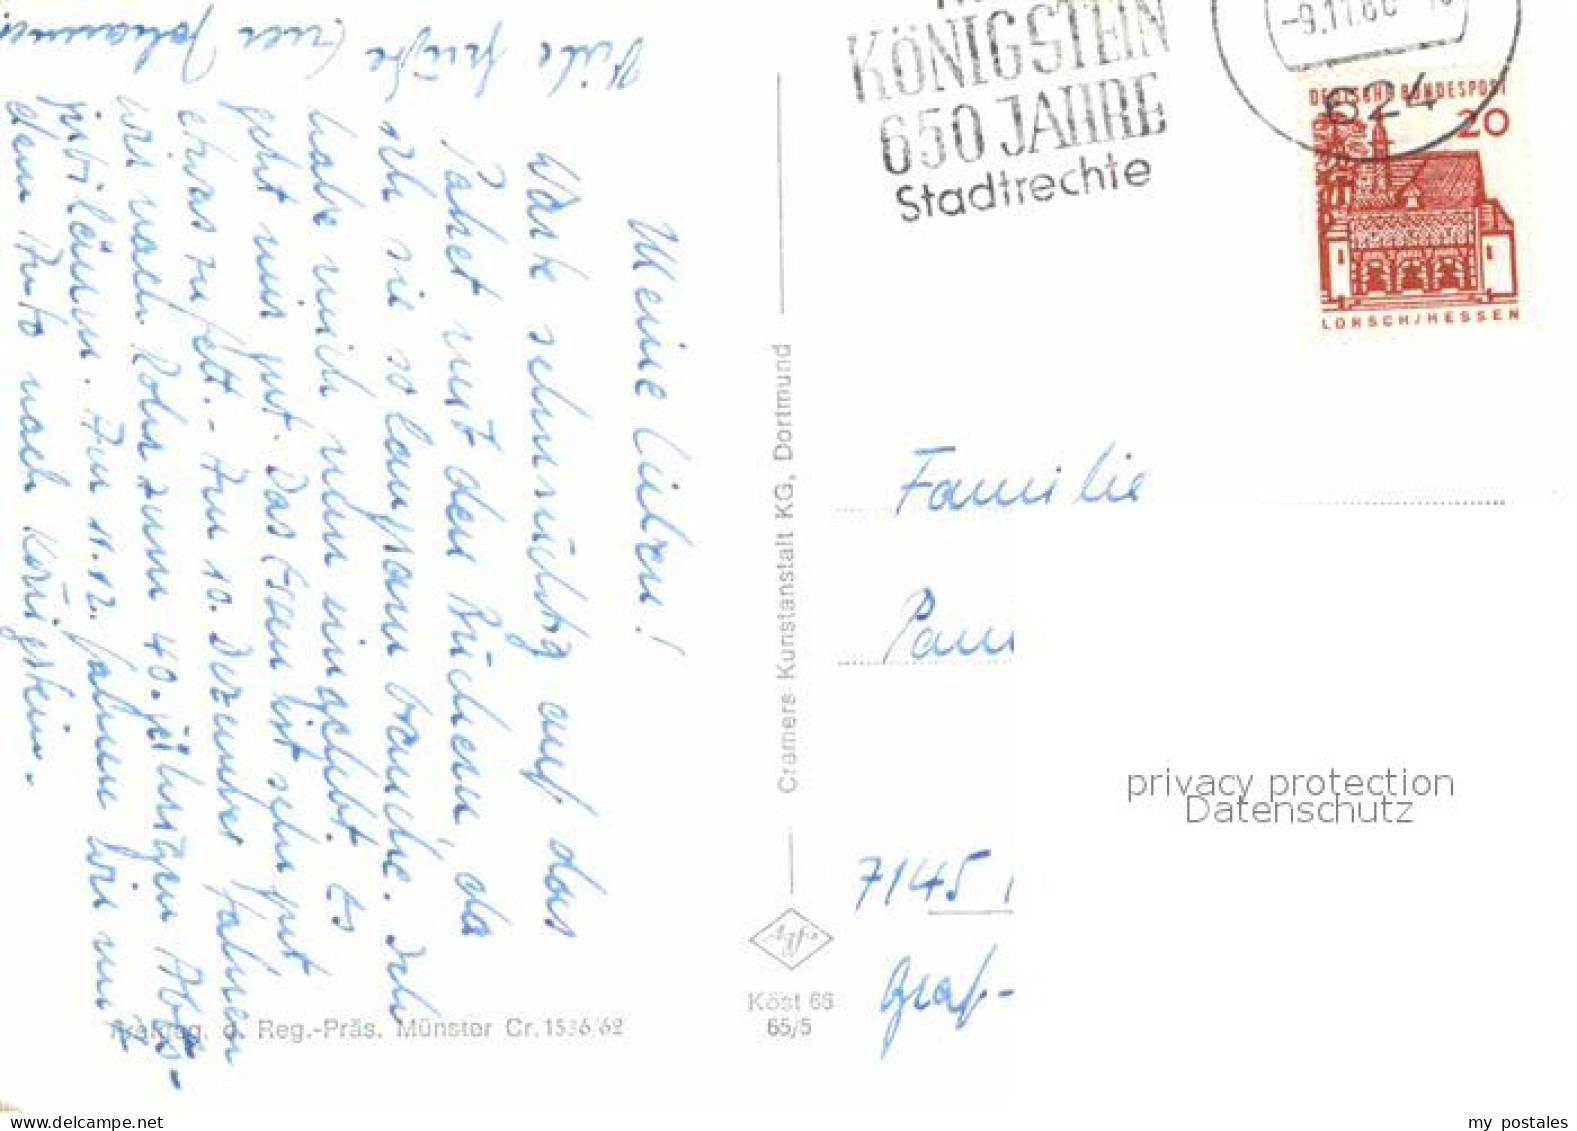 Meine Lieben!
Warte sehnsüchtig auf das
Paket mit den Büchern, da
ich sie so langsam brauche. Ich
habe mich nun eingelebt. Es
geht mir gut. Das Essen ist sehr gut
etwas zu fett. - Am 10. Dezember fahren
wir nach Rohr zum 40. jährigen Abts-
jubiläum. Am 11.12. fahren wir mit
dem Auto nach Königstein.
Viele Grüße Euer Johannes
Freigeg. d. Reg.-Präs. Münster Cr. 1536/62
Cramers Kunstanstalt KG, Dortmund
Köst 66
65/5
KÖNIGSTEIN
650 JAHRE
Stadtrechte
-9.11.66
624
DEUTSCHE BUNDESPOST
20
LORSCH/HESSEN
Familie
Pau
7145
Graf-
privacy protection
Datenschutz
my postales